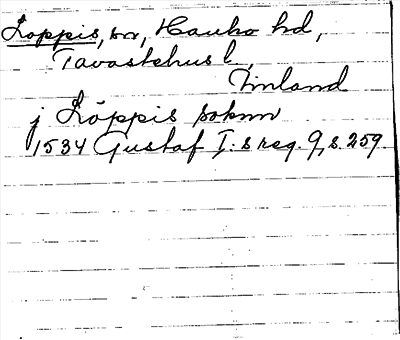 Loppis, sn, Hauho hd,
Tavastehus l,
Finland
j Löppis soknn
1534 Gustaf I:s reg. 9, s. 259.